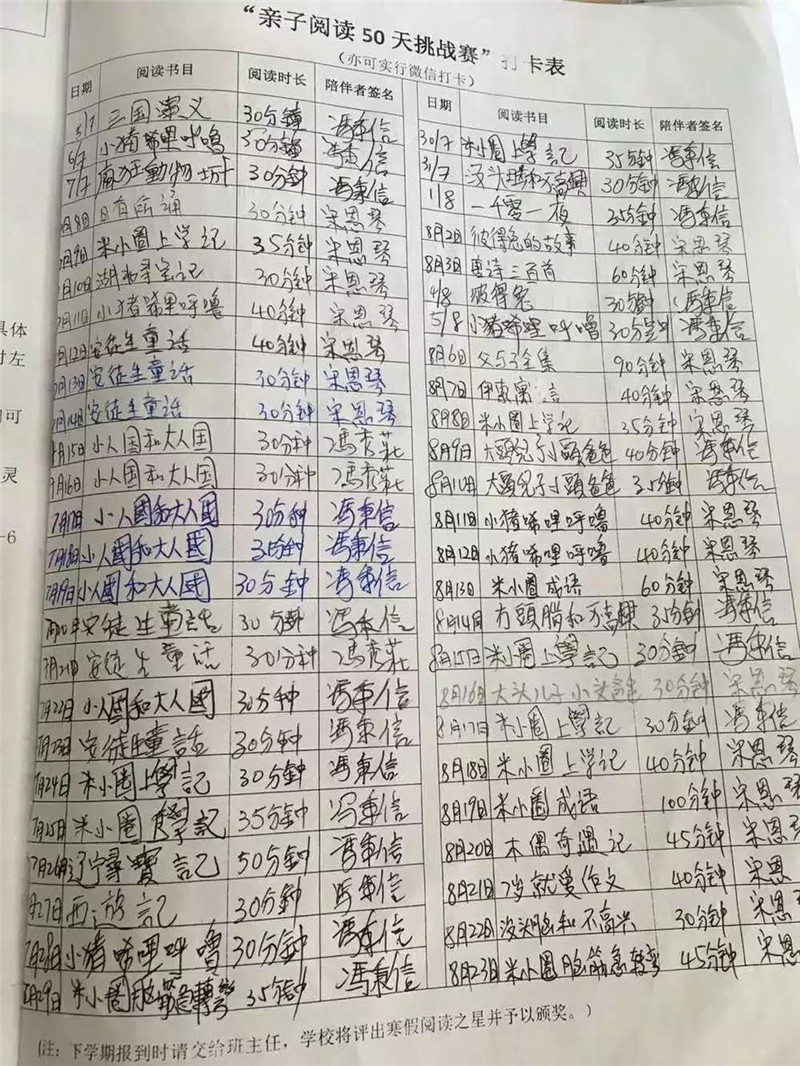 “亲子阅读50天挑战赛”打卡表
(亦可实行微信打卡)
日期 阅读书目 阅读时长 陪伴者签名
5/7 三国演义 30分鐘 馮秉信
6/7 小猪唏哩呼嚕 30分鐘 馮秉信
7/7 瘋狂動物城 30分鐘 馮秉信
月8日 30分钟 宋恩琴
月9日 米小圈上学记 35分钟 宋恩琴
月10日 湖南寻宝记 30分钟 宋恩琴
7月11日 小猪唏哩呼噜 40分钟 宋恩琴
月12日 安徒生童话 40分钟 宋恩琴
月13日 安徒生童话 30分钟 宋恩琴
月14日 安徒生童话 30分钟 宋恩琴
月15日 小人国和大人国 30分钟 冯秀莊
月16日 小人国和大人国 30分钟 冯秀莊
7月17日 小人國和大人國 30分种 馮秉信
7月18日 小人國和大人國 30分钟 馮秉信
7月19日 小人國和大人國 30分钟 馮秉信
7月20日 安徒生童話 30分钟 馮秉信
7月21日 安徒生童话 30分钟 冯秀莊
7月22日 小人國和大人國 30分钟 馮秉信
7月23日 安徒生童話 30分钟 馮秉信
7月24日 米小圈上學記 30分鐘 馮秉信
7月25日 米小圈上學記 35分鐘 冯秉信
7月26日 辽宁尋寶記 50分鐘 馮秉信
月27日 西遊記 30分鐘 馮秉信
7月28日 小猪唏哩呼嚕 30分鐘 馮秉信
月29日 米小圈脑筋急轉彎 35分钟 馮秉信
日期 阅读书目 阅读时长 陪伴者签名
30/7 米小圈上學記 35分钟 馮秉信
31/7 没头脑和不高興 30分钟 馮秉信
1/8 一千零一夜 35分钟 馮秉信
8月2日 彼得兔的故事 40分钟 宋恩琴
8月3日 唐诗三百首 60分钟 宋恩琴
4/8 彼得兔 30分钟 馮秉信
5/8 小猪唏哩呼嚕 30分钟 馮秉信
8月6日 父与子全集 90分钟 宋恩琴
8月7日 伊索寓言 40分钟 宋恩琴
8月8日 米小圈上学记 35分钟 宋恩琴
8月9日 大頭兒子小頭爸爸 40分钟 馮秉信
8月10日 大頭兒子小頭爸爸 35分钟 馮秉信
8月11日 小猪唏哩呼噜 40分钟 宋恩琴
8月12日 小猪唏哩呼噜 40分钟 宋恩琴
8月13日 米小圈成语 60分钟 宋恩琴
8月14日 方頭腦和不高興 35分钟 馮秉信
8月15日 米小圈上學記 30分钟 馮秉信
8月16日 大头儿子小头爸爸 30分钟 宋恩琴
8月17日 米小圈上學記 30分钟 馮秉信
8月18日 米小圈上学记 40分钟 宋恩琴
8月19日 米小圈成语 100分钟 宋恩琴
8月20日 木偶奇遇记 45分钟 宋恩琴
8月21日 7岁就爱作文 40分钟 宋恩
8月22日 没头脑和不高兴 30分钟 宋恩
8月23日 米小圈脑筋急转弯 45分钟 宋恩
(注：下学期报到时请交给班主任，学校将评出寒假阅读之星并予以颁奖。)
具体
对左
可
灵
-6